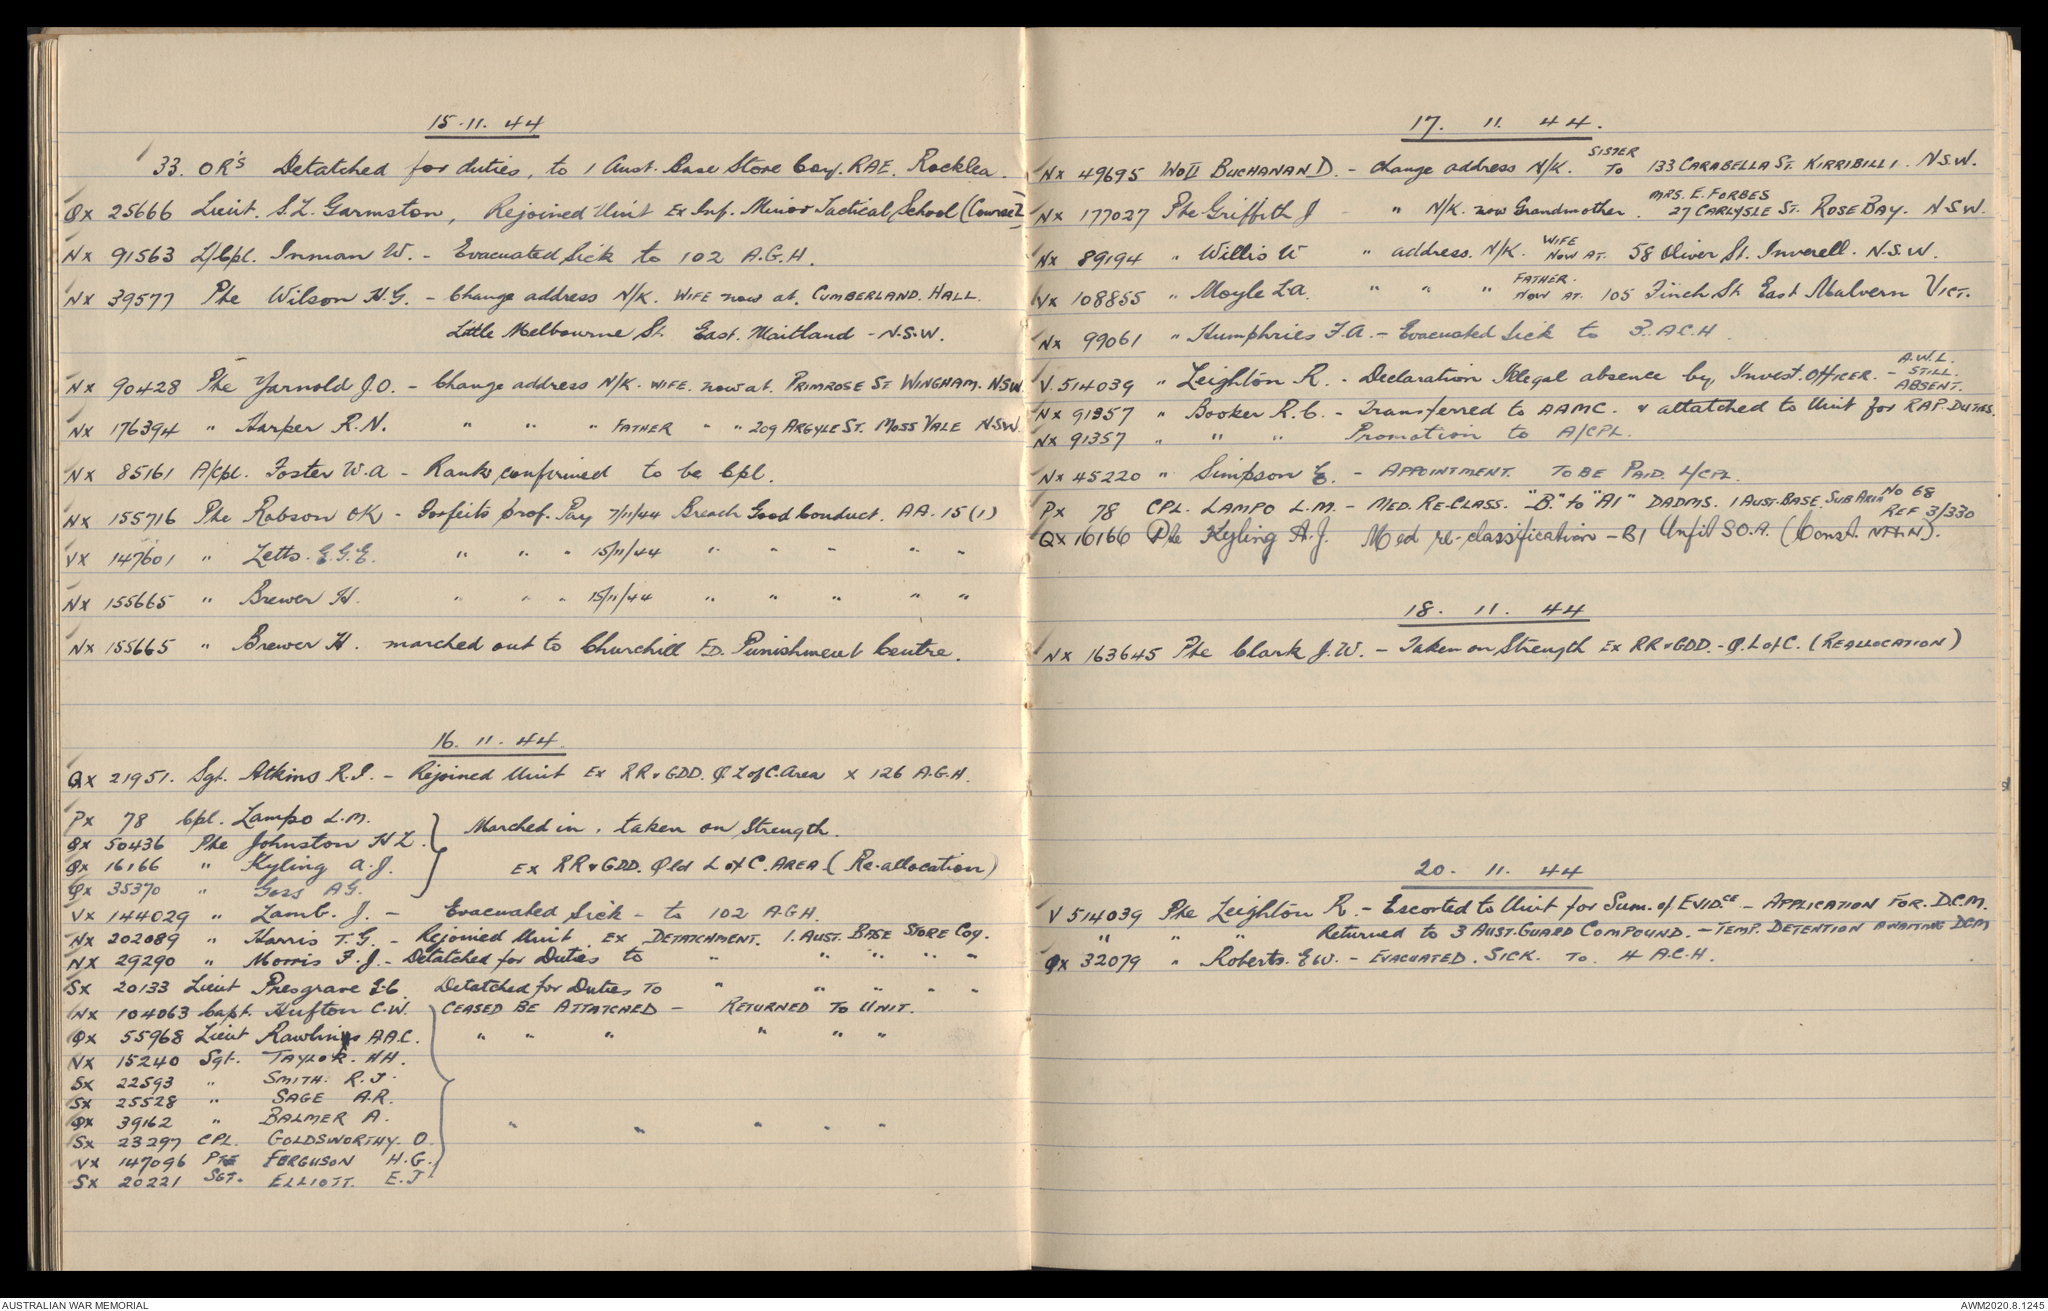 15.11.44
33. OR's Detatched for duties, to 1 Aust. Base Store Coy. RAE. Rocklea.
QX 25666 Lieut. S.L. Garmston, Rejoined Unit Ex Inf. Minor Tactical School (Course)
NX 91563 L/Cpl. Inman W. - Evacuated Sick to 102 A.G.H.
NX 39577 Pte Wilson H.G. - Change address N/K. WIFE now at. CUMBERLAND. HALL.
Little Melbourne St. East. Maitland - N.S.W.
NX 90428 Pte Yarnold J.O. - Change address N/K. WIFE. now at. PRIMROSE ST WINGHAM. NSW
NX 176394 " Harper R.N. " " " FATHER " " 209 ARGYLE ST. MOSS VALE NSW
NX 85161 A/Cpl. Foster W.A - Rank confirmed to be Cpl.
NX 155716 Pte Robson OK - Forfeits prof. Pay 7/11/44 Breach Good Conduct. AA. 15 (1)
VX 147601 " Letts. E.G.E. " " " 15/11/44 " " " " "
NX 155665 " Brewer H. " " " 15/11/44 " " " " "
NX 155665 " Brewer H. marched out to Churchill F.D. Punishment Centre.
16. 11. 44
QX 21951. Sgt. Atkins R.I. - Rejoined Unit Ex RR & GDD. Q L of C. Area X 126 A.G.H.
PX 78 Cpl. Lampo L.M.
Marched in, taken on Strength.
QX 50436 Pte Johnston H L.
QX 16166 " Kyling A.J.
EX RR & GDD. Qld L of C. AREA (Re-allocation)
QX 35370 " Goss A G.
VX 144029 " Lamb. J. - Evacuated Sick - to 102 A.G.H.
NX 202089 " Harris T.G. - Rejoined Unit. EX DETATCHMENT. 1. AUST. BASE STORE COY.
NX 29290 " Morris F.J. - Detatched for Duties to " " " " "
SX 20133 Lieut Presgrave E.C. Detatched for Duties To " " " " "
NX 104063 Capt. Hufton C.W. CEASED BE ATTATCHED - RETURNED TO UNIT.
QX 55968 Lieut Rawlings A.A.C. " " " " " "
NX 15240 Sgt. TAYLOR. H H.
SX 22593 " SMITH. R. J.
SX 25528 " SAGE A.R.
QX 39162 " BALMER A.
SX 23297 CPL. GOLDSWORTHY. O. " " " " "
VX 147096 PTE FERGUSON H.G.
SX 20221 SGT. ELLIOTT. E.J
17. 11. 44.
NX 49695 WOII BUCHANAN D. - Change address N/K. SISTER TO 133 CARABELLA ST. KIRRIBILLI. N.S.W.
NX 177027 Pte Griffith J - " N/K. now Grandmother. MRS. E. FORBES 27 CARLYSLE ST. ROSE BAY. N.S.W.
NX 89194 " Willis W " address. N/K. WIFE NOW AT. 58 Oliver St. Inverell. N.S.W.
VX 108855 " Moyle L.A. " " " FATHER. NOW AT. 105 Finch. St East Malvern VICT.
NX 99061 " Humphries F.A. - Evacuated Sick to 3. A.C.H.
V. 514039 " Leighton R. - Declaration Illegal absence by, Invest. OFFICER. - A.W.L. - STILL. ABSENT.
NX 91357 " Booker R.C. - Transferred to A A M C. & attatched to Unit for RAP. DUTIES.
NX 91357 " " " Promotion to A/CPL.
NX 45220 " Simpson E. - APPOINTMENT. TO BE PAID. L/CPL.
PX 78 CPL. LAMPO L.M. - MED. RE-CLASS. "B." to "A1" DADMS. 1 AUST. BASE. SUB AREA No 68 REF 3/330
QX 16166 Pte Kyling A.J. Med re-classification - B1 Unfit S.O.A. (Const.
18. 11. 44
NX 163645 Pte Clark J.W. - Taken on Strength EX RR & GDD. - Q. L of C. (REALLOCATION)
20. 11. 44
V 514039 Pte Leighton R. - Escorted to Unit for Sum. of EVIDCE - APPLICATION FOR. D.C.M.
" " " Returned to 3 AUST. GUARD COMPOUND. - TEMP. DETENTION AWAITING DCM
QX 32079 " Roberts. E W. - EVACUATED. SICK. TO. 4 A.C.H.
AUSTRALIAN WAR MEMORIAL
AWM2020.8.1245